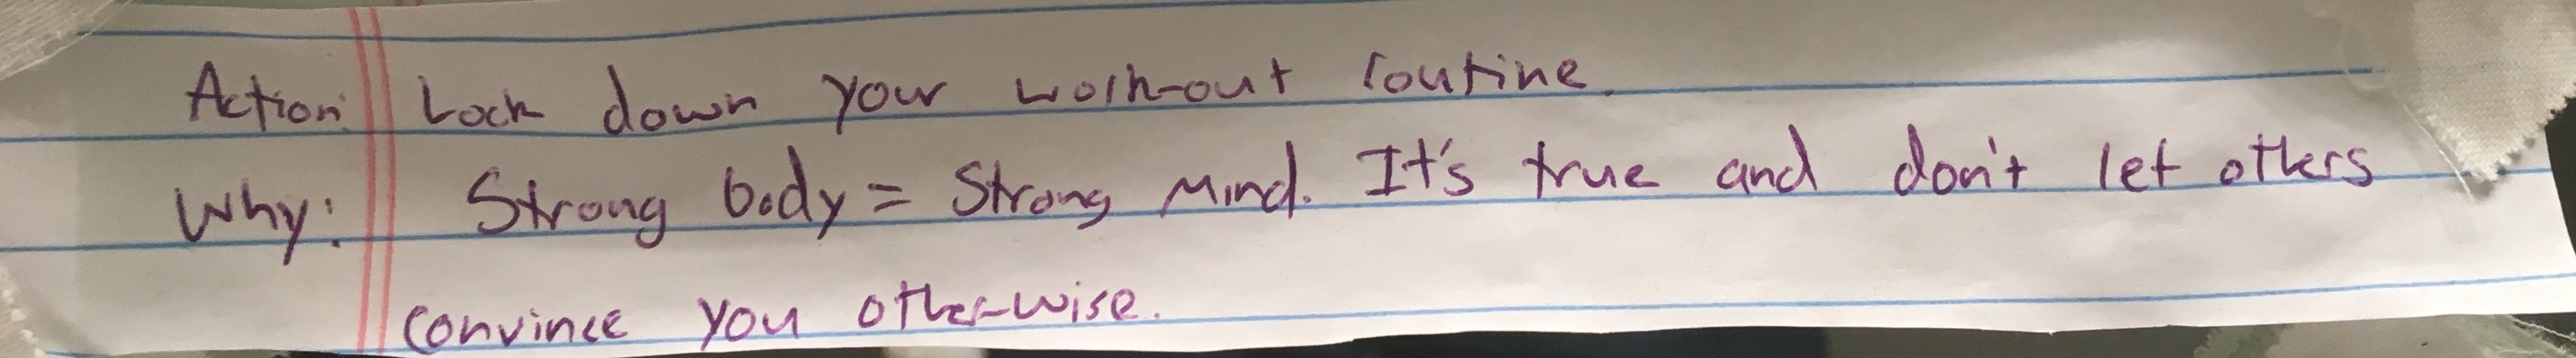 Action: Lock down your work-out routine.
Why: Strong body = Strong Mind. It's true and don't let others
convince you otherwise.